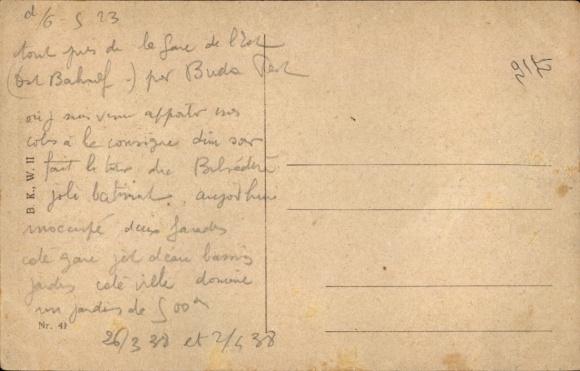 d/6 - 5 23
tout près de la Gare de l'Est
(Ost Bahnof -) per Buda Pest
où j suis venu apporter mes
colis à la consigne dim soir
fait le tour du Belvédère
joli batiment, aujordhui
inoccupé deux façades
coté gare jet d'eau bassins
jardin coté ville domine
un jardin de 500 m
26/3 38 et 2/4 38
B. K., W. II
Nr. 41